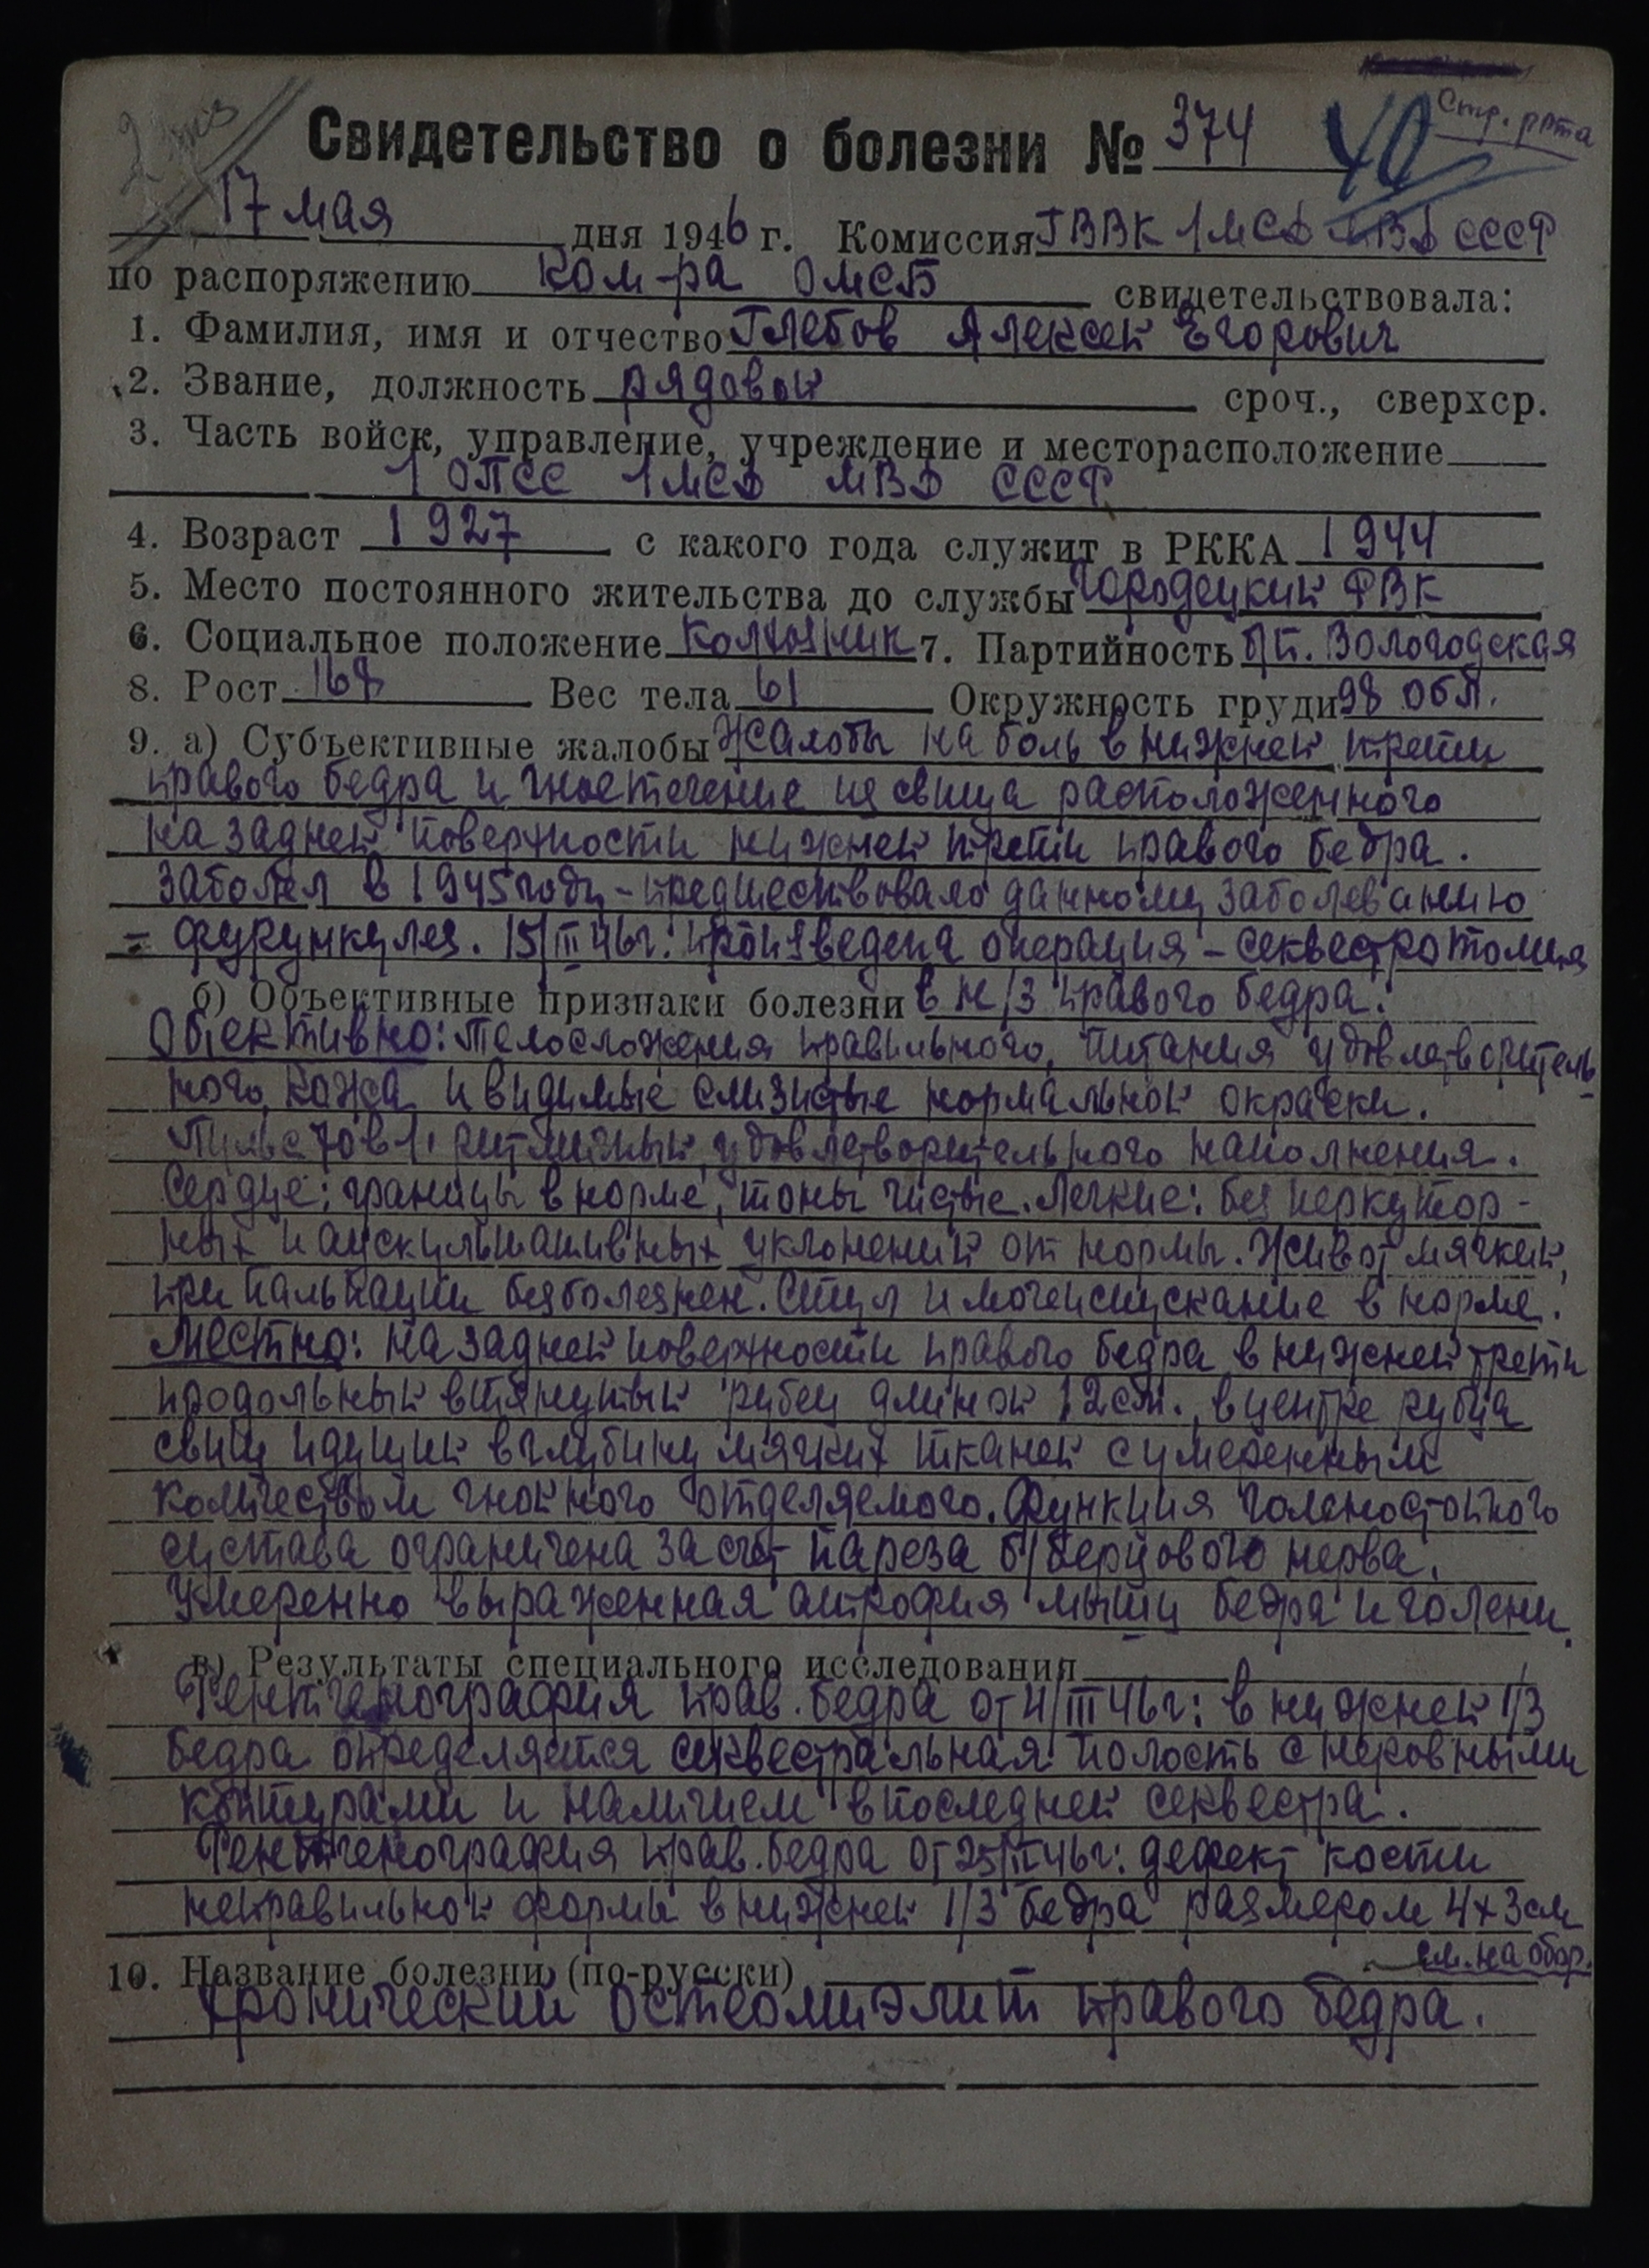 Стр. рота
Свидетельство о болезни № 374
40
17 мая дня 1946 г. Комиссия ГВВК 1 МСД МВД СССР
по распоряжению ком-ра ОМСБ свидетельствовала:
1. Фамилия, имя и отчество Глебов Алексей Егорович
2. Звание, должность рядовой сроч., сверхср.
3. Часть войск, управление, учреждение и месторасположение
1 ОПСС 1 МСД МВД СССР
4. Возраст 1927 с какого года служит в РККА 1944
5. Место постоянного жительства до службы Городецкий РВК
6. Социальное положение колхозник 7. Партийность б/п. Вологодская
8. Рост 168 Вес тела 61 Окружность груди 98 обл.
9. а) Субъективные жалобы Жалобы на боль в нижней трети
правого бедра и гноетечение из свища расположенного
на задней поверхности нижней трети правого бедра.
Заболел в 1945 году - предшествовало данному заболеванию
- фурункулез. 15/III 46г. произведена операция - секвестротомия
б) Объективные признаки болезни в н/3 правого бедра.
Обективно: телосложения правильного, питания удовлетворитель-
ного, кожа и видимые слизистые нормальной окраски.
Пульс 70 в 1' ритмичный, удовлетворительного наполнения.
Сердце: границы в норме, тоны чистые. Легкие: без перкутор-
ных и аускультативных уклонений от нормы. Живот мягкий,
при пальпации безболезнен. Стул и мочеиспускание в норме.
Местно: на задней поверхности правого бедра в нижней трети
продольный втянутый рубец длиной 12 см., в центре рубца
свищ идущий в глубину мягких тканей с умеренным
количеством гнойного отделяемого. Функция голеностопного
сустава ограничена за счет пареза б/берцового нерва.
Умеренно выраженная атрофия мышц бедра и голени.
в) Результаты специального исследования
Рентгенография прав. бедра от 4/III 46г: в нижней 1/3
бедра определяется секвестральная полость с неровными
контурами и наличием в последней секвестра.
Рентгенография прав. бедра от 25/IV 46г: дефект кости
неправильной формы в нижней 1/3 бедра размером 4х3 см
см. на обор.
10. Название болезни (по-русски)
Хронический остеомиэлит правого бедра.